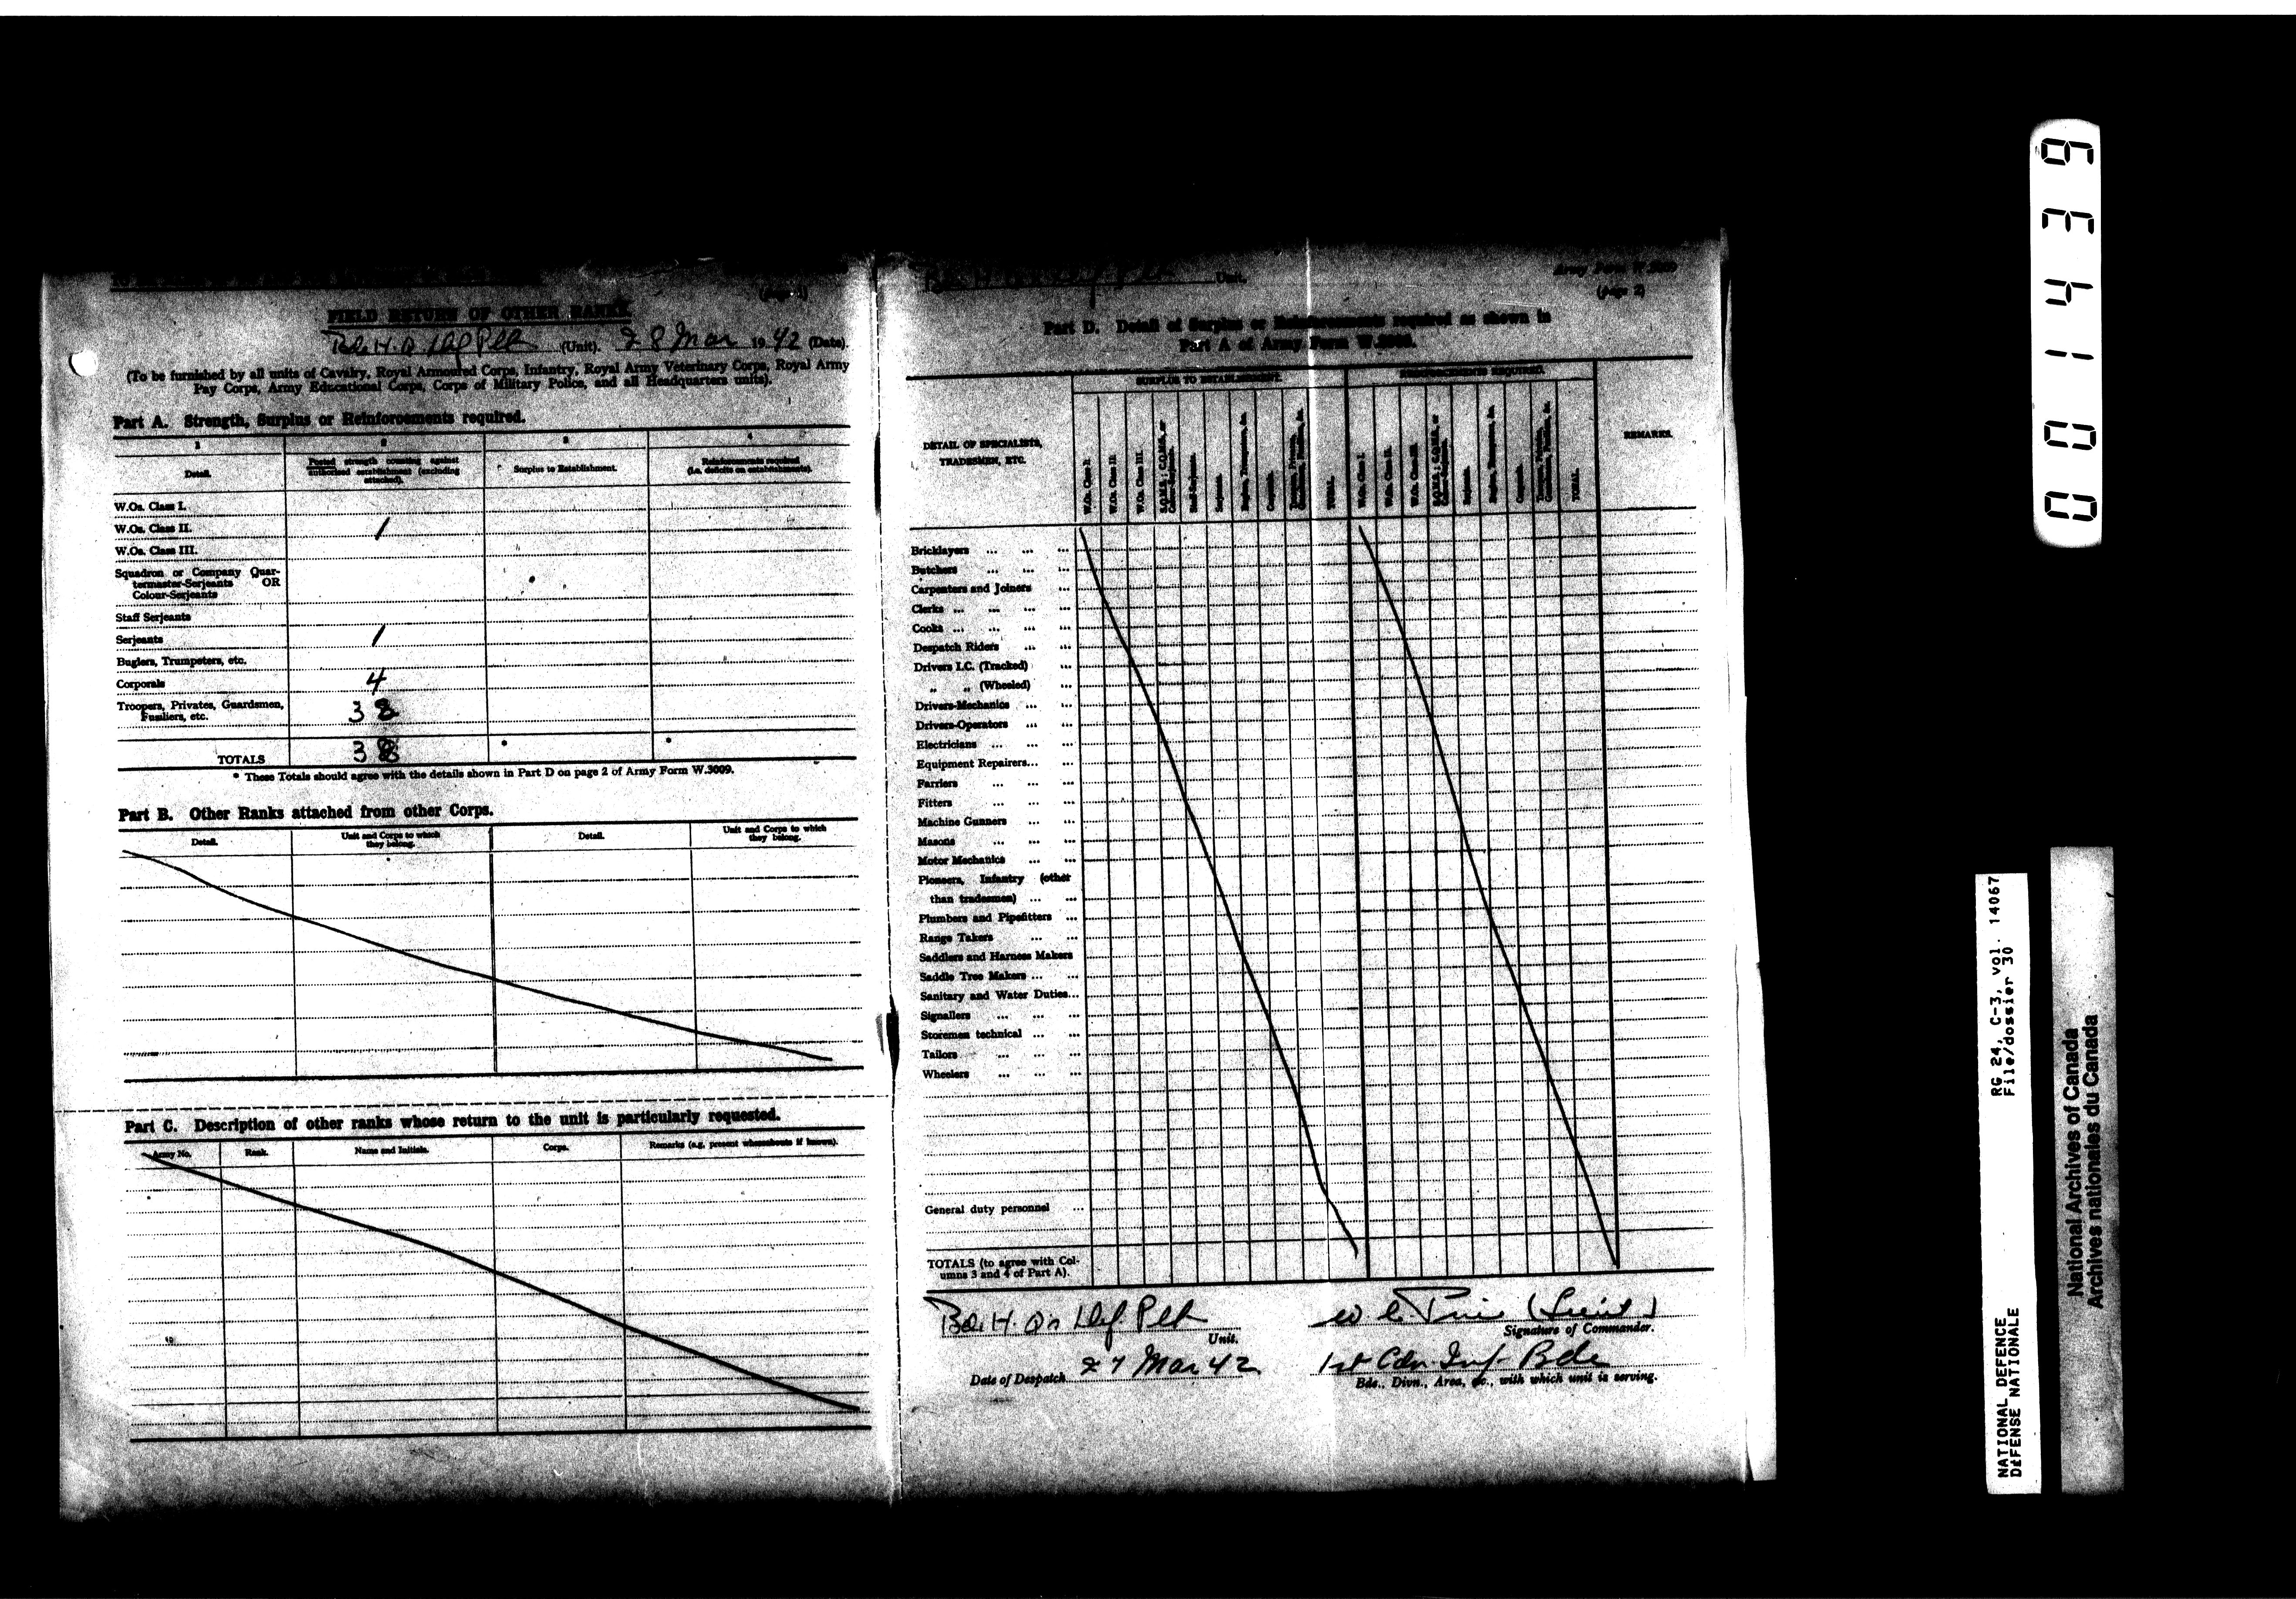 (page 1)
FIELD RETURN OF OTHER RANKS.
Bde H.Q Def Plt (Unit). 28 Mar 1942 (Date).
(To be furnished by all units of Cavalry, Royal Armoured Corps, Infantry, Royal Army Veterinary Corps, Royal Army
Pay Corps, Army Educational Corps, Corps of Military Police, and all Headquarters units).
Part A. Strength, Surplus or Reinforcements required.
1 2 3 4
Detail. Posted strength counting against authorised establishment (excluding attached). Surplus to Establishment. Reinforcements required (i.e. deficits on establishments).
W.Os. Class I.
W.Os. Class II. 1
W.Os. Class III.
Squadron or Company Quar-
termaster-Serjeants OR
Colour-Serjeants
Staff Serjeants
Serjeants 1
Buglers, Trumpeters, etc.
Corporals 4
Troopers, Privates, Guardsmen, 38
Fusiliers, etc.
TOTALS 38 * *
* These Totals should agree with the details shown in Part D on page 2 of Army Form W.3009.
Part B. Other Ranks attached from other Corps.
Detail. Unit and Corps to which they belong. Detail. Unit and Corps to which they belong.
Part C. Description of other ranks whose return to the unit is particularly requested.
Army No. Rank. Name and Initials. Corps. Remarks (e.g. present whereabouts if known).
Unit. Army Form W.3009
(page 2)
Part D. Detail of Surplus or Reinforcements required as shown in
Part A of Army Form W.3009.
SURPLUS TO ESTABLISHMENT. REINFORCEMENTS REQUIRED.
DETAIL OF SPECIALISTS,
TRADESMEN, ETC.
W.Os. Class I. W.Os. Class II. W.Os. Class III. Staff Serjeants. Serjeants. Corporals. TOTAL. W.Os. Class I. W.Os. Class II. W.Os. Class III. Serjeants. Corporals. TOTAL.
REMARKS.
Bricklayers ... ... ...
Butchers ... ... ...
Carpenters and Joiners ...
Clerks ... ... ... ...
Cooks ... ... ... ...
Despatch Riders ... ...
Drivers I.C. (Tracked) ...
„ „ (Wheeled) ...
Drivers-Mechanics ... ...
Drivers-Operators ... ...
Electricians ... ... ...
Equipment Repairers... ...
Farriers ... ... ...
Fitters ... ... ...
Machine Gunners ... ...
Masons ... ... ...
Motor Mechanics ... ...
Pioneers, Infantry (other
than tradesmen) ... ...
Plumbers and Pipefitters ...
Range Takers ... ...
Saddlers and Harness Makers
Saddle Tree Makers ... ...
Sanitary and Water Duties...
Signallers ... ... ...
Storemen technical ... ...
Tailors ... ... ...
Wheelers ... ... ...
General duty personnel ...
TOTALS (to agree with Col-
umns 3 and 4 of Part A).
Bde. H. Qrs Def. Plt (Lieut)
Unit. Signature of Commander.
Date of Despatch 27 Mar 42 1st Cdn. Inf. Bde
Bde., Divn., Area, etc., with which unit is serving.
001439
RG 24, C-3, vol. 14067
File/dossier 30
NATIONAL DEFENCE
DÉFENSE NATIONALE
National Archives of Canada
Archives nationales du Canada